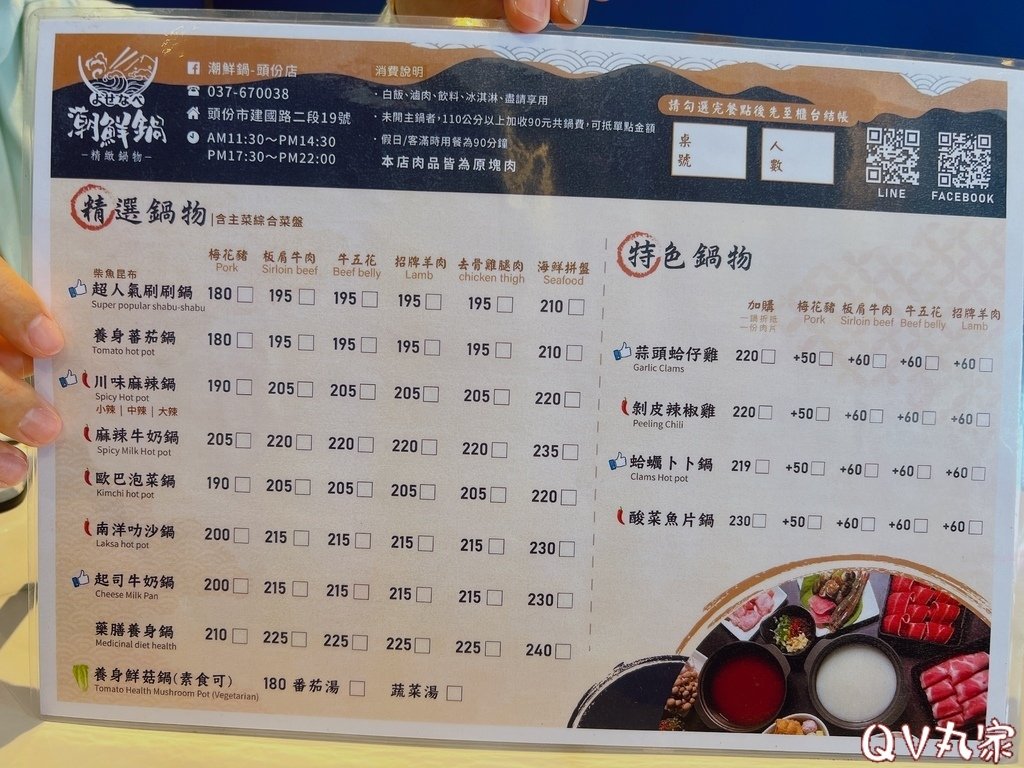 よせなべ
潮鮮鍋
—精緻鍋物—
潮鮮鍋-頭份店
037-670038
頭份市建國路二段19號
AM11:30～PM14:30
PM17:30～PM22:00
消費說明
·白飯、滷肉、飲料、冰淇淋、盡請享用
·未開主鍋者,110公分以上加收90元共鍋費,可抵單點金額
·假日/客滿時用餐為90分鐘
本店肉品皆為原塊肉
請勾選完餐點後先至櫃台結帳
桌號
人數
LINE
FACEBOOK
精選鍋物 |含主菜綜合菜盤
梅花豬 板肩牛肉 牛五花 招牌羊肉 去骨雞腿肉 海鮮拼盤
Pork Sirloin beef Beef belly Lamb chicken thigh Seafood
柴魚昆布
超人氣刷刷鍋 180 195 195 195 195 210
Super popular shabu-shabu
養身蕃茄鍋 180 195 195 195 195 210
Tomato hot pot
川味麻辣鍋 190 205 205 205 205 220
Spicy Hot pot
小辣 | 中辣 | 大辣
麻辣牛奶鍋 205 220 220 220 220 235
Spicy Milk Hot pot
歐巴泡菜鍋 190 205 205 205 205 220
Kimchi hot pot
南洋叻沙鍋 200 215 215 215 215 230
Laksa hot pot
起司牛奶鍋 200 215 215 215 215 230
Cheese Milk Pan
藥膳養身鍋 210 225 225 225 225 240
Medicinal diet health
養身鮮菇鍋(素食可) 180 番茄湯 蔬菜湯
Tomato Health Mushroom Pot (Vegetarian)
特色鍋物
加購 梅花豬 板肩牛肉 牛五花 招牌羊肉
一鍋折抵 Pork Sirloin beef Beef belly Lamb
一份肉片
蒜頭蛤仔雞 220 +50 +60 +60 +60
Garlic Clams
剝皮辣椒雞 220 +50 +60 +60 +60
Peeling Chili
蛤蠣卜卜鍋 219 +50 +60 +60 +60
Clams Hot pot
酸菜魚片鍋 230 +50 +60 +60 +60
QV丸家